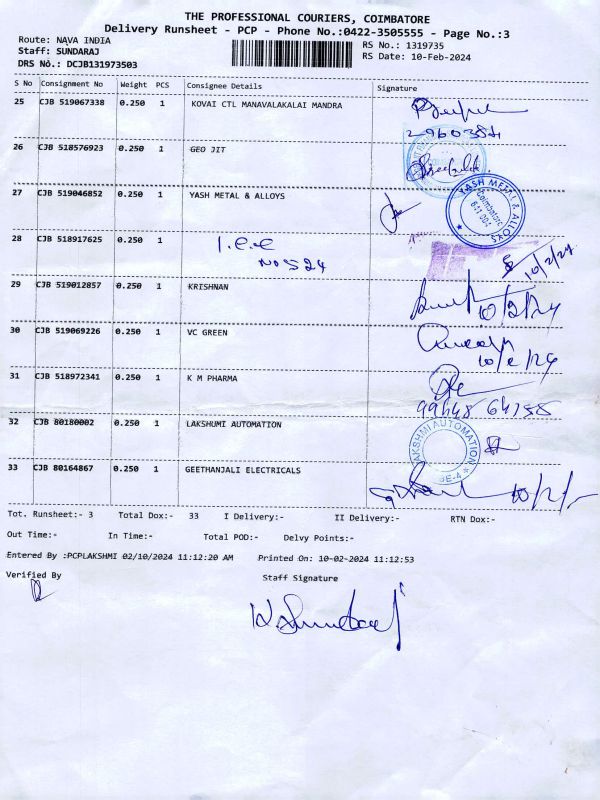 THE PROFESSIONAL COURIERS, COIMBATORE
Delivery Runsheet - PCP - Phone No.:0422-3505555 - Page No.:3
Route: NAVA INDIA
RS No.: 1319735
Staff: SUNDARAJ
RS Date: 10-Feb-2024
DRS No.: DCJB131973503
S No Consignment No Weight PCS Consignee Details Signature
25 CJB 519067338 0.250 1 KOVAI CTL MANAVALAKALAI MANDRA
26 CJB 518576923 0.250 1 GEO JIT
27 CJB 519046852 0.250 1 YASH METAL & ALLOYS
YASH METAL & ALLOYS
Coimbatore
28 CJB 518917625 0.250 1
10/2/24
29 CJB 519012857 0.250 1 KRISHNAN
10/2/24
30 CJB 519069226 0.250 1 VC GREEN
10/2/24
31 CJB 518972341 0.250 1 K M PHARMA
32 CJB 80180002 0.250 1 LAKSHUMI AUTOMATION
LAKSHMI AUTOMATION
33 CJB 80164867 0.250 1 GEETHANJALI ELECTRICALS
Tot. Runsheet:- 3 Total Dox:- 33 I Delivery:- II Delivery:- RTN Dox:-
Out Time:- In Time:- Total POD:- Delvy Points:-
Entered By :PCPLAKSHMI 02/10/2024 11:12:20 AM Printed On: 10-02-2024 11:12:53
Verified By Staff Signature